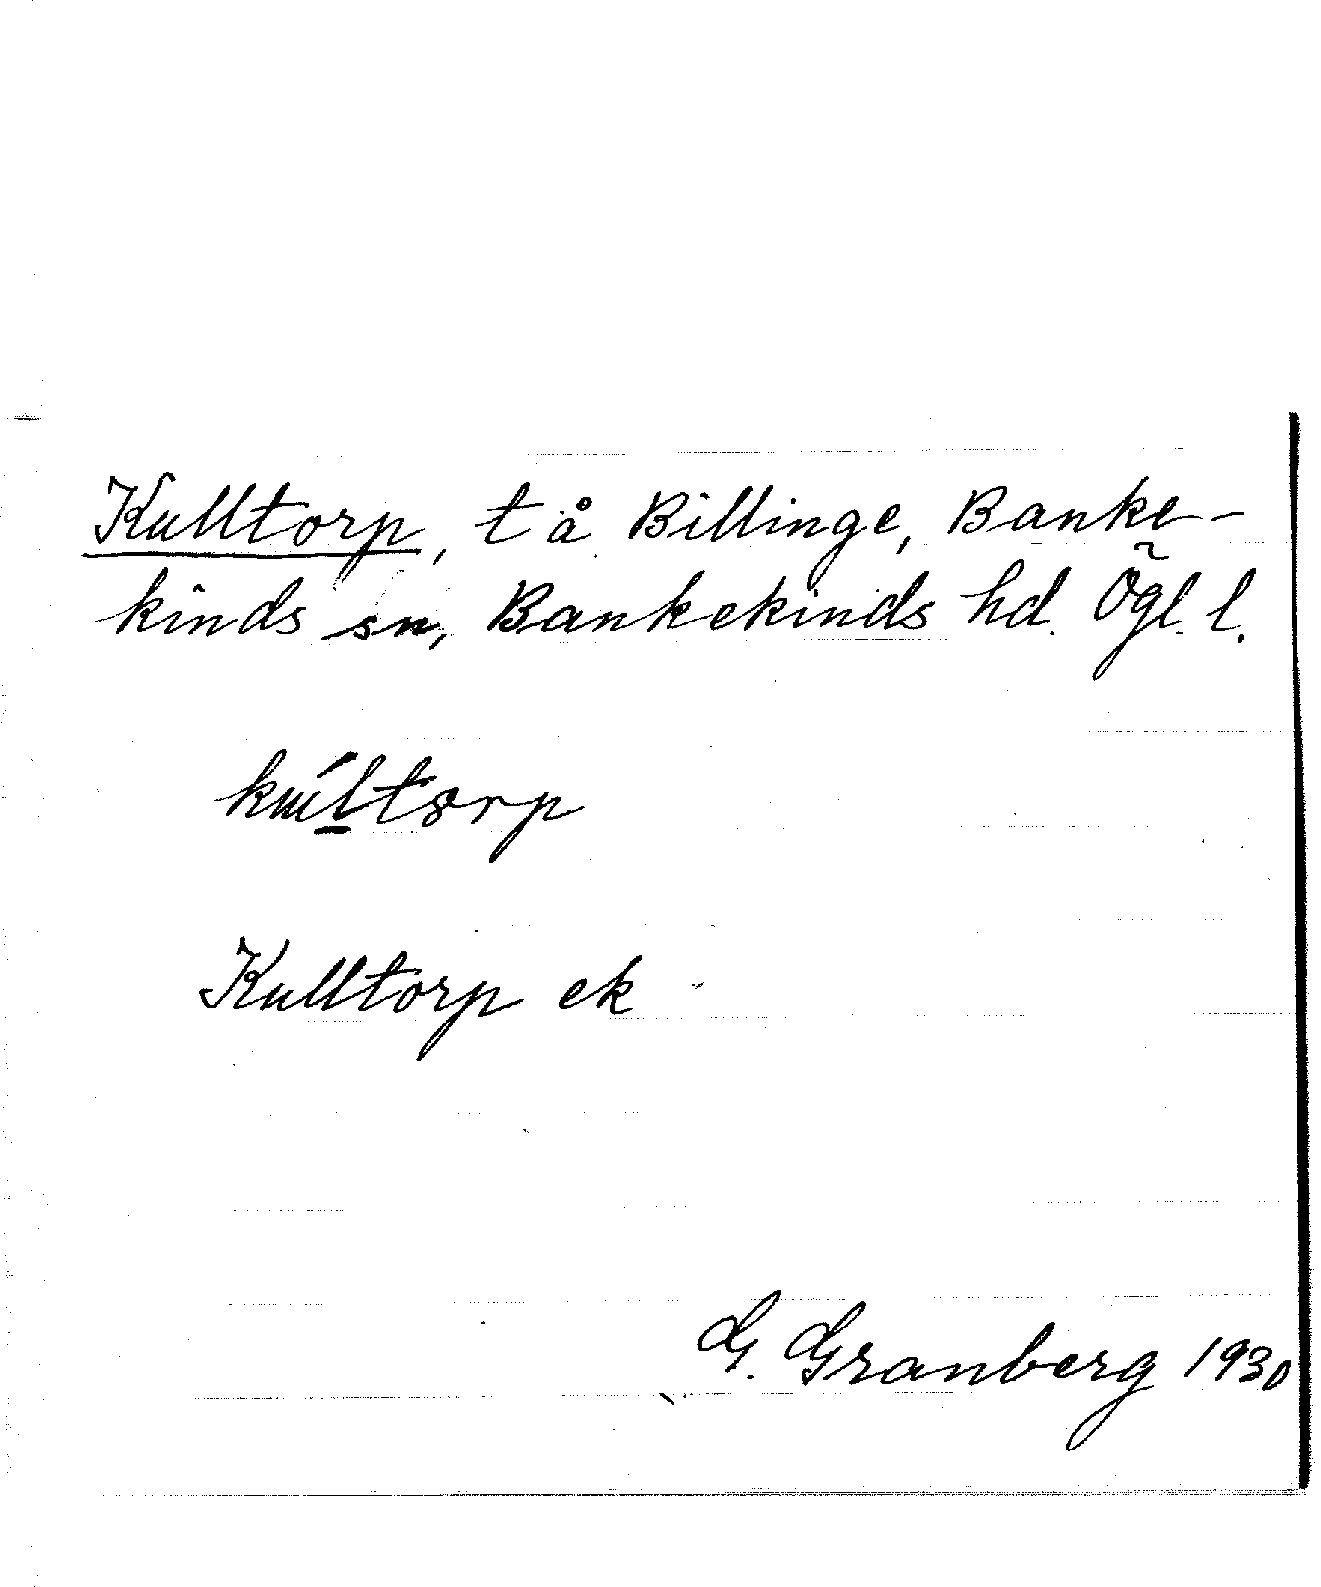 Kulltorp, t å Billinge, Banke-
kinds sn, Bankekinds hd. Ögl. l.
Kulltorp ek
G. Granberg 1930